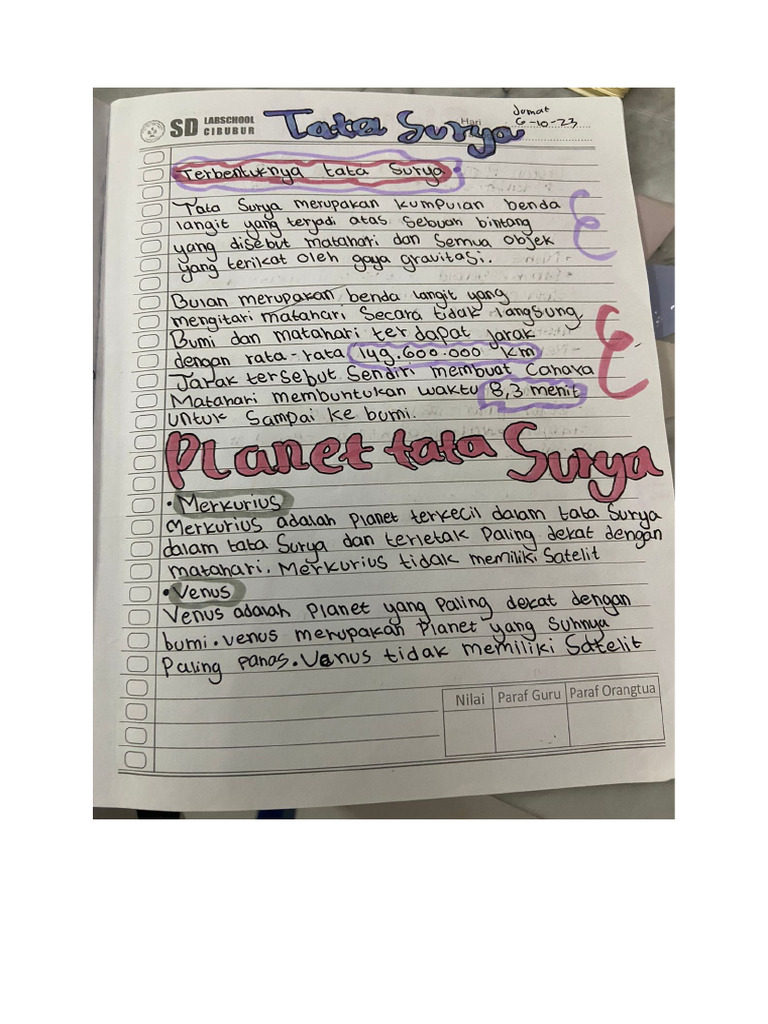 SD LABSCHOOL CIBUBUR
Tata Surya
Hari
Jumat
6-10-23
Terbentuknya tata Surya
Tata Surya merupakan kumpulan benda
langit yang terjadi atas sebuah bintang
yang disebut matahari dan semua objek
yang terikat oleh gaya gravitasi.
Bulan merupakan benda langit yang
mengitari matahari Secara tidak langsung
Bumi dan matahari terdapat jarak
dengan rata-rata 149.600.000 km
Jarak tersebut Sendiri membuat Cahaya
Matahari membuntukan waktu 8,3 menit
untuk Sampai ke bumi.
Planet tata Surya
• Merkurius
Merkurius adalah Planet terkecil dalam tata Surya
dalam tata Surya dan terletak Paling dekat dengan
matahari. Merkurius tidak memiliki Satelit
• Venus
Venus adalah Planet yang Paling dekat dengan
bumi. venus merupakan Planet yang Suhnya
Paling panas. Venus tidak memiliki Satelit
Nilai Paraf Guru Paraf Orangtua